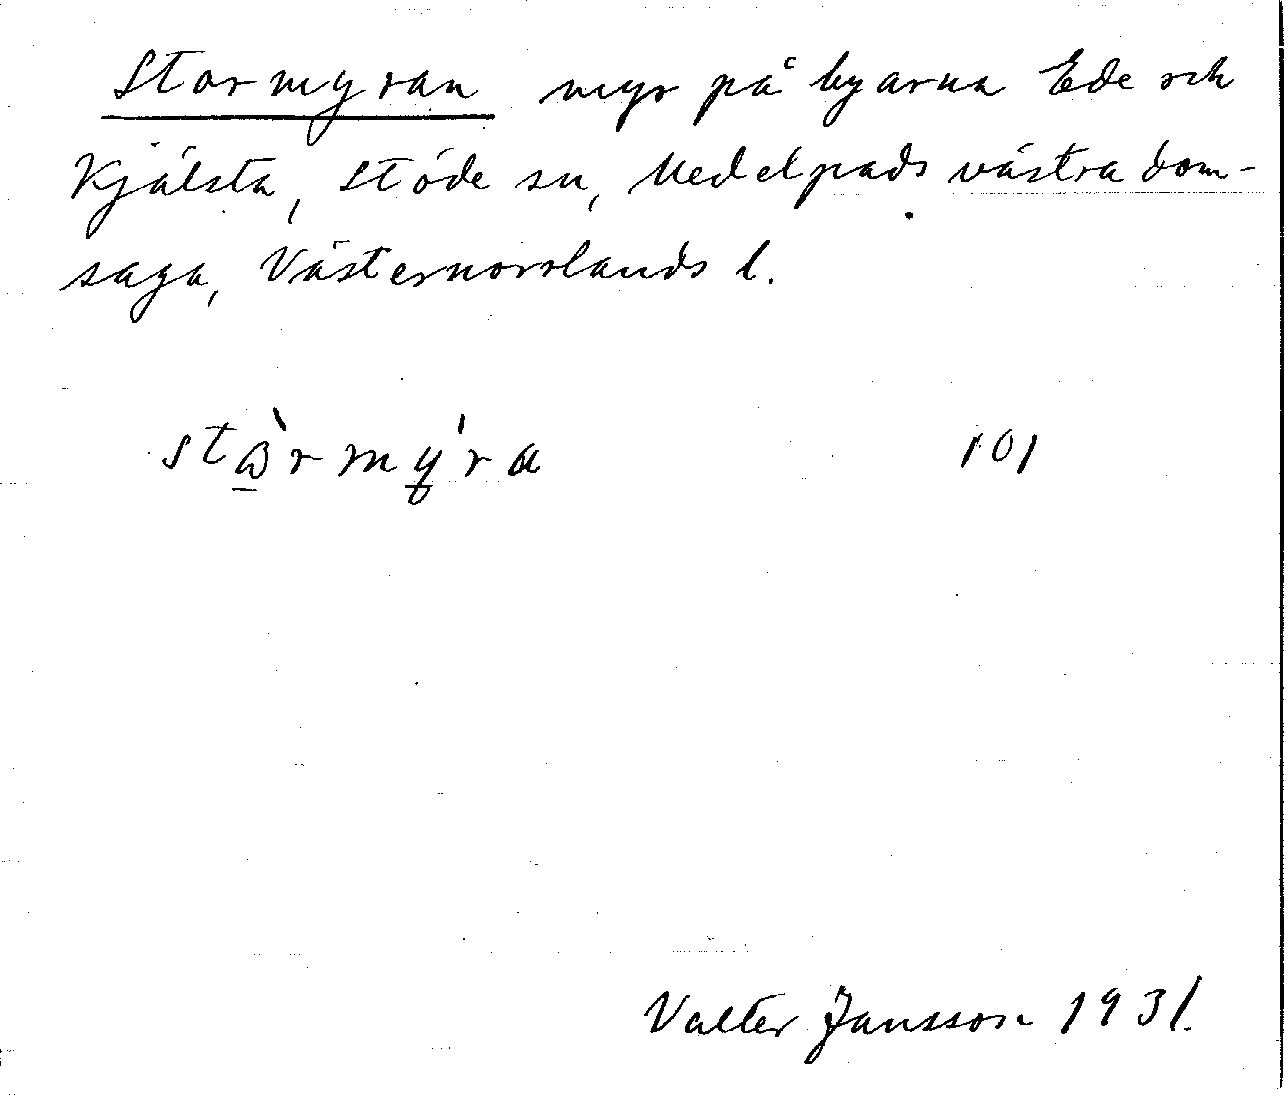 Stormyran myr på byarna Ede och
Kjälsta, Stöde sn, Medelpads västra dom-
saga, Västernorrlands l.
stɷ̀rmý̱ra 101
Valter Jansson 1931.